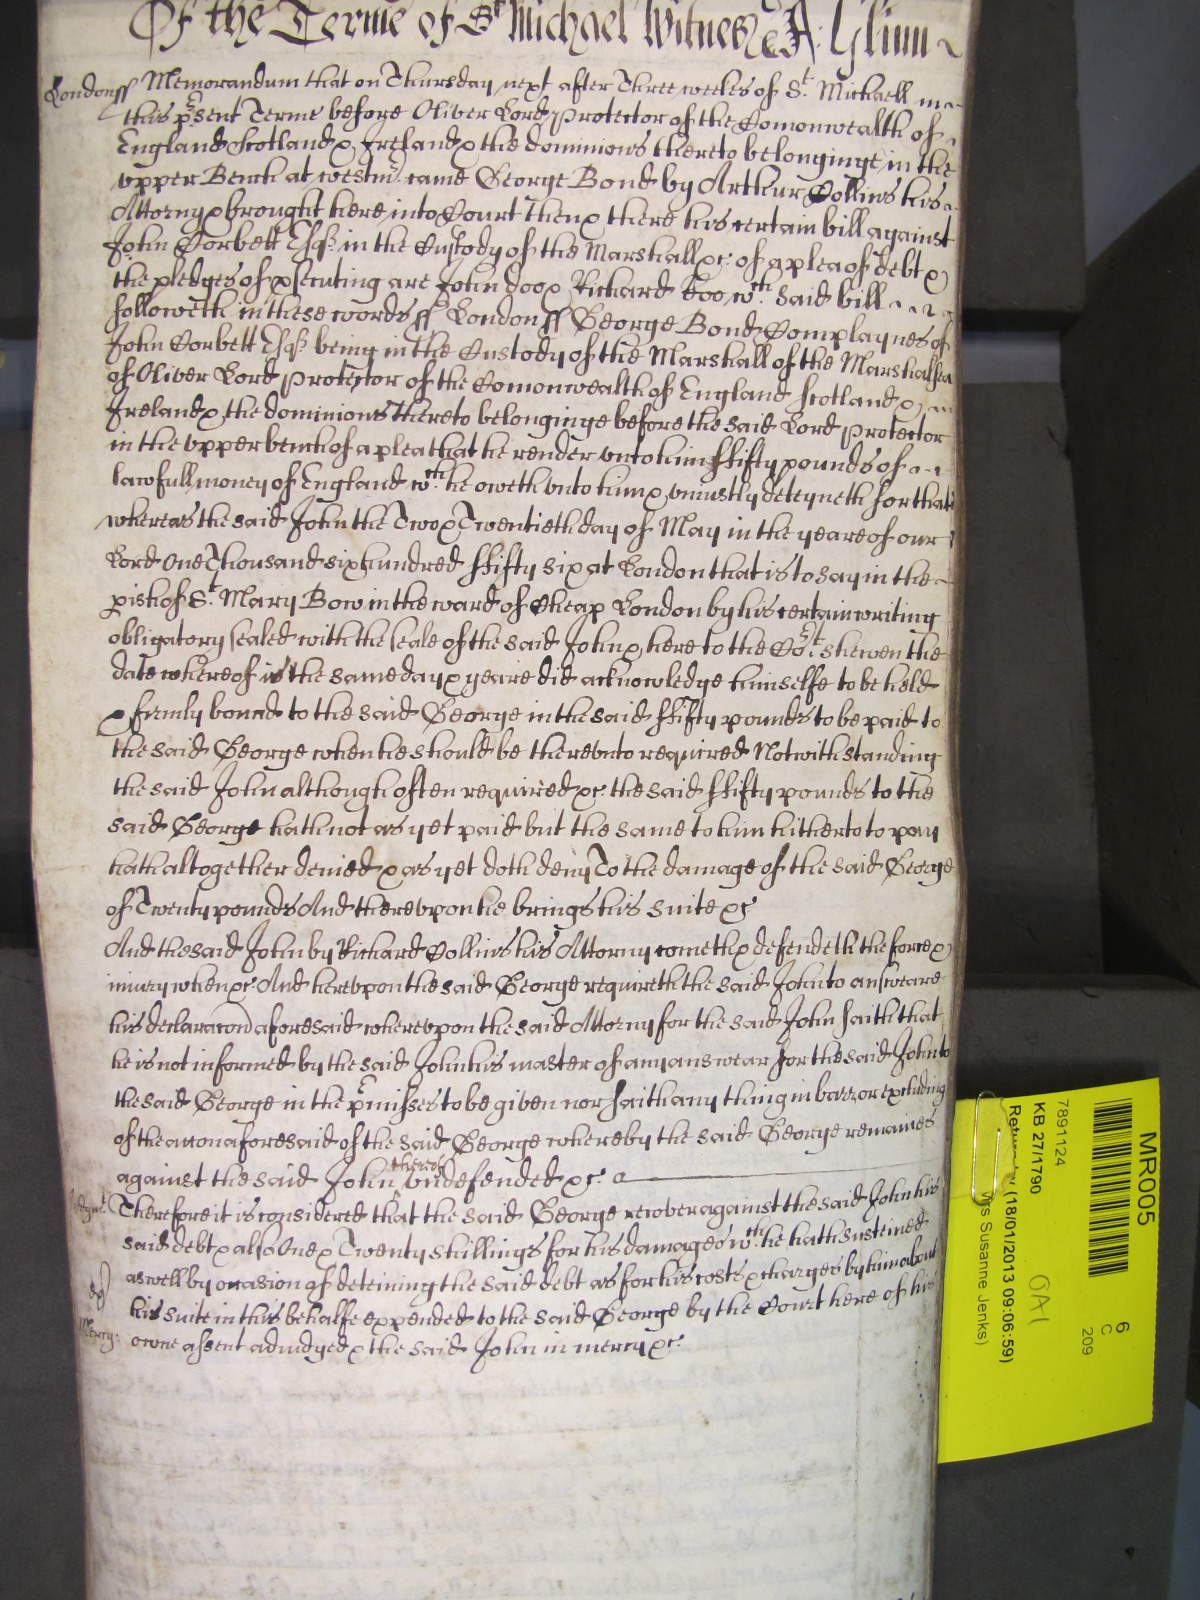 Of the Terme of St Michael Witness &c J: Glinn
London ss Memorandum that on Thursday next after Three weekes of St. Michaell in
this p'sent Terme before Oliver Lord Protector of the Comonwealth of
England Scotland & Ireland & the dominions thereto belonginge in the
vpper Bench at westm' came George Bond by Arthur Collins his
Attorny & brought here into Court then & there his certain bill against
John Corbett Esqr in the Custody of the Marshall &c. of a plea of debt &
the pledges of p'secuting are John doo & Richard Roo wch. said bill
followeth in these words ss London ss George Bond Complaynes of
John Corbett Esqr being in the Custody of the Marshall of the Marshalsea
of Oliver Lord Protector of the Comonwealth of England Scotland &
Ireland & the dominions thereto belonginge before the said Lord Protector
in the vpper bench of a plea that he render vnto him ffifty pounds of
lawfull money of England wch. he oweth vnto him & vniustly deteyneth for that
whereas the said John the Two & Twentieth day of May in the yeare of our
Lord One Thousand six hundred ffifty six at London that is to say in the
pish of St. Mary Bow in the ward of Cheap London by his certain writing
obligatory sealed with the seale of the said John & here to the Cort shewen the
date whereof is the same day & yeare did acknowledge himselfe to be held
& firmly bound to the said George in the said ffifty pounds to be paid to
the said George when he should be therevnto required Notwithstanding
the said John although often required &c. the said ffifty pounds to the
said George hath not as yet paid but the same to him hitherto to pay
hath altogether denied & as yet doth deny To the damage of the said George
of Twenty pounds And therevpon he brings his suite &c
And the said John by Richard Collins his Attorny cometh & defendeth the force &
iniury when &c. And herevpon the said George requireth the said John to answeare
his declaracon aforesaid wherevpon the said Attorny for the said John saith that
he is not informed by the said John his master of any answear for the said John to
the said George in the p'misses to be given nor saith any thing in barr or excluding
of the accon aforesaid of the said George whereby the said George remaines
against the said John thereof vndefended &c.
Judgmt. Therefore it is considered that the said George recover against the said John his
said debt & also One & Twenty shillings for his damages wch he hath susteined
aswell by occasion of deteining the said debt as for his costs & charges by him about
his suite in this behalfe expended to the said George by the Court here of his
Mercy: owne assent adiudged & the said John in mercy &c.
MR005
6
C
209
7891124
KB 27/1790
(18/01/2013 09:06:59)
Ms Susanne Jenks)
OA1